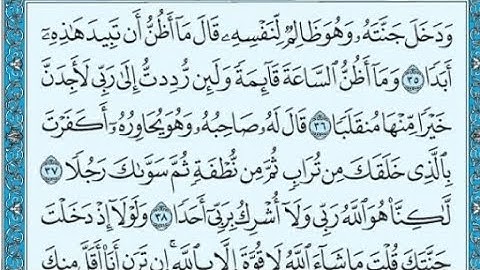 وَدَخَلَ جَنَّتَهُۥ وَهُوَ ظَالِمٌ لِّنَفْسِهِۦ قَالَ مَآ أَظُنُّ أَن تَبِيدَ هَٰذِهِۦٓ
أَبَدًا ٣٥ وَمَآ أَظُنُّ ٱلسَّاعَةَ قَآئِمَةً وَلَئِن رُّدِدتُّ إِلَىٰ رَبِّى لَأَجِدَنَّ
خَيْرًا مِّنْهَا مُنقَلَبًا ٣٦ قَالَ لَهُۥ صَاحِبُهُۥ وَهُوَ يُحَاوِرُهُۥٓ أَكَفَرْتَ
بِٱلَّذِى خَلَقَكَ مِن تُرَابٍ ثُمَّ مِن نُّطْفَةٍ ثُمَّ سَوَّىٰكَ رَجُلًا ٣٧
لَّٰكِنَّا۠ هُوَ ٱللَّهُ رَبِّى وَلَآ أُشْرِكُ بِرَبِّىٓ أَحَدًا ٣٨ وَلَوْلَآ إِذْ دَخَلْتَ
جَنَّتَكَ قُلْتَ مَا شَآءَ ٱللَّهُ لَا قُوَّةَ إِلَّا بِٱللَّهِ ۚ إِن تَرَنِ أَنَا۠ أَقَلَّ مِنكَ